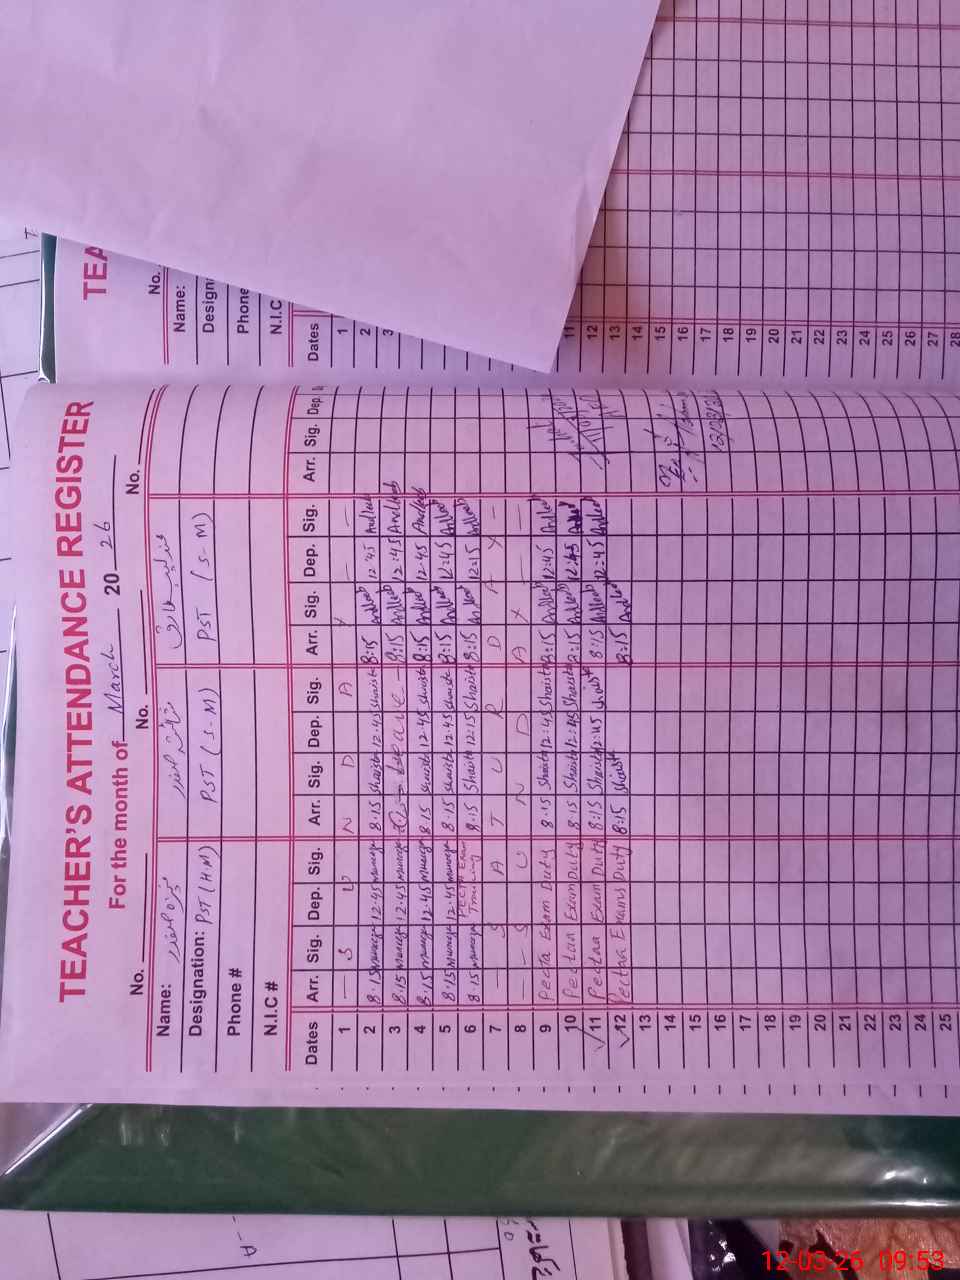 TEACHER'S ATTENDANCE REGISTER
For the month of March 2026
No. No. No.
Name:
Designation: PST (HM) PST (S-M) PST (S-M)
Phone #
N.I.C #
Dates Arr. Sig. Dep. Sig. Arr. Sig. Dep. Sig. Arr. Sig. Dep. Sig. Arr. Sig. Dep.
1 S U N D A Y
2 8:15 12:45 8:15 Shaista 12:45 Shaista 8:15 Andleeb 12:45 Andleeb
3 8:15 12:45 Leave 8:15 Andleeb 12:45 Andleeb
4 8:15 12:45 8:15 Shaista 12:45 Shaista 8:15 Andleeb 12:45 Andleeb
5 8:15 12:45 8:15 Shaista 12:45 Shaista 8:15 Andleeb 12:45 Andleeb
6 8:15 PECTA Exam Training 8:15 Shaista 12:15 Shaista 8:15 Andleeb 12:15 Andleeb
7 S A T U R D A Y
8 S U N D A Y
9 Pecta Exam Duty 8:15 Shaista 12:45 Shaista 8:15 Andleeb 12:45 Andleeb
10 Pectaa Exam Duty 8:15 Shaista 12:45 Shaista 8:15 Andleeb 12:45 Andleeb
11 Pectaa Exam Duty 8:15 Shaista 12:45 Shaista 8:15 Andleeb 12:45 Andleeb
12 Pectaa Exams Duty 8:15 Shaista 8:15 Andleeb
13
14
15
16
17
18
19
20
21
22
23
24
25
12/03/26
TEA
No.
Name:
Design
Phone
N.I.C
Dates
1
2
3
11
12
13
14
15
16
17
18
19
20
21
22
23
24
25
26
27
28
12-03-26 09:53